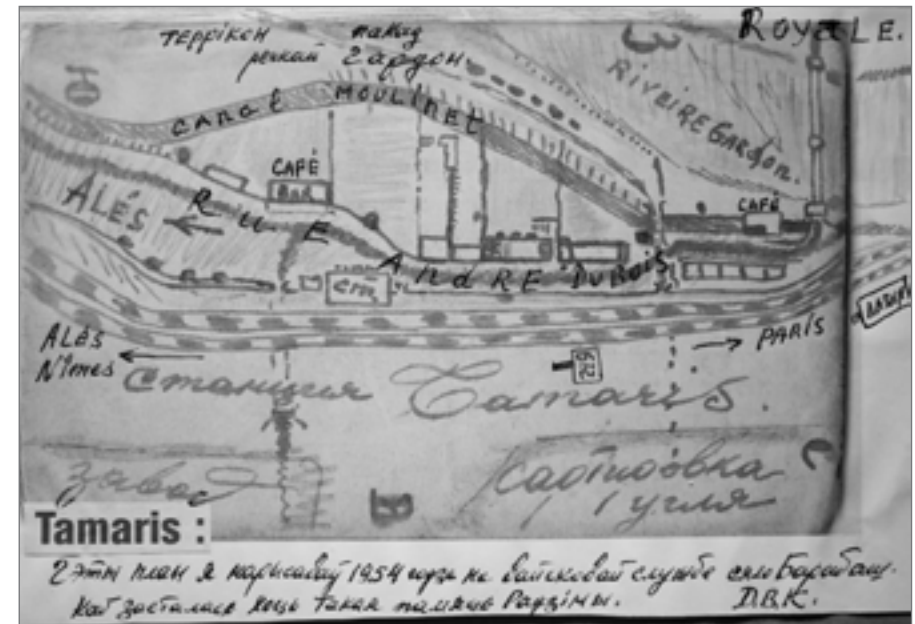 ROYALE.
террікон пакид
речкай Гардон.
З
RIVEIRE GARDON.
Ю
CANAL MOULINET
CAFÉ
BAR
CAFÉ
ALÉS
RUE ANdRE DUBOIS
ст.
ALÉS
Nîmes
PARÍS
Станция Tamaris.
завод
сартировка
угля
С
В
Tamaris :
Гэты план я нарысаваў 1954 годзе на вайсковай службе сяло Барабаш.
Каб засталася хоць такая памяць Радзімы. Д.В.К.